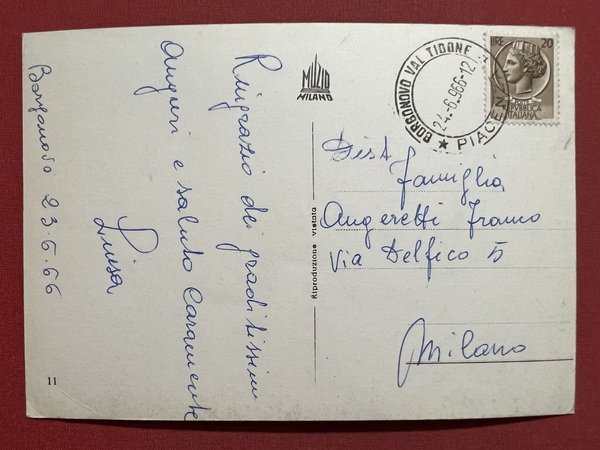 Borgonovo 23.6.66
Ringrazio dei graditissimi
Auguri e saluto Caramente
Luisa
11
MUZIO
MILANO
Riproduzione vietata
BORGONOVO VAL TIDONE
24.-6.966-12
★ PIACENZA
LIRE 20
REPUBBLICA
ITALIANA
Dist
famiglia
Angeretti Franco
Via Delfico 5
Milano